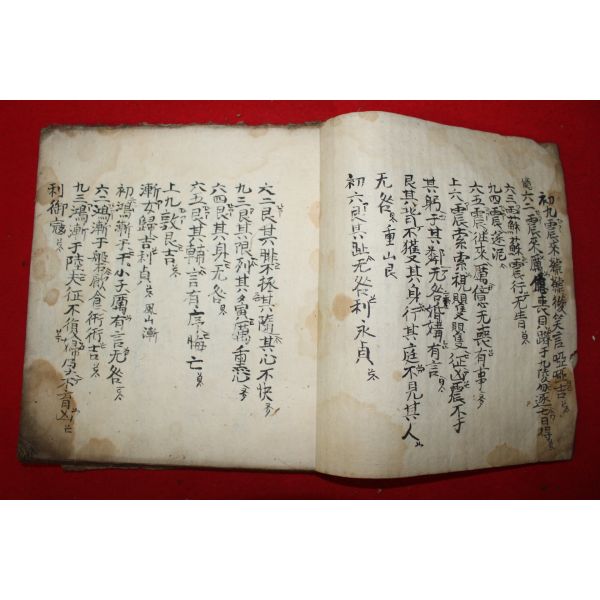 初九震來虩虩後笑言啞啞吉
六二震來厲億喪貝躋于九陵勿逐七日得
六三震蘇蘇震行无眚
九四震遂泥
六五震往來厲億无喪有事
上六震索索視矍矍征凶震不于
其躬于其鄰无咎婚媾有言
艮其背不獲其身行其庭不見其人
无咎 重山艮
初六艮其趾无咎利永貞
六二艮其腓不拯其隨其心不快
九三艮其限列其夤厲薰心
六四艮其身无咎
六五艮其輔言有序悔亡
上九敦艮吉
漸女歸吉利貞 風山漸
初鴻漸于干小子厲有言无咎
六二鴻漸于飮食衎衎吉
九三鴻漸于陸夫征不復婦孕不育凶
利御寇